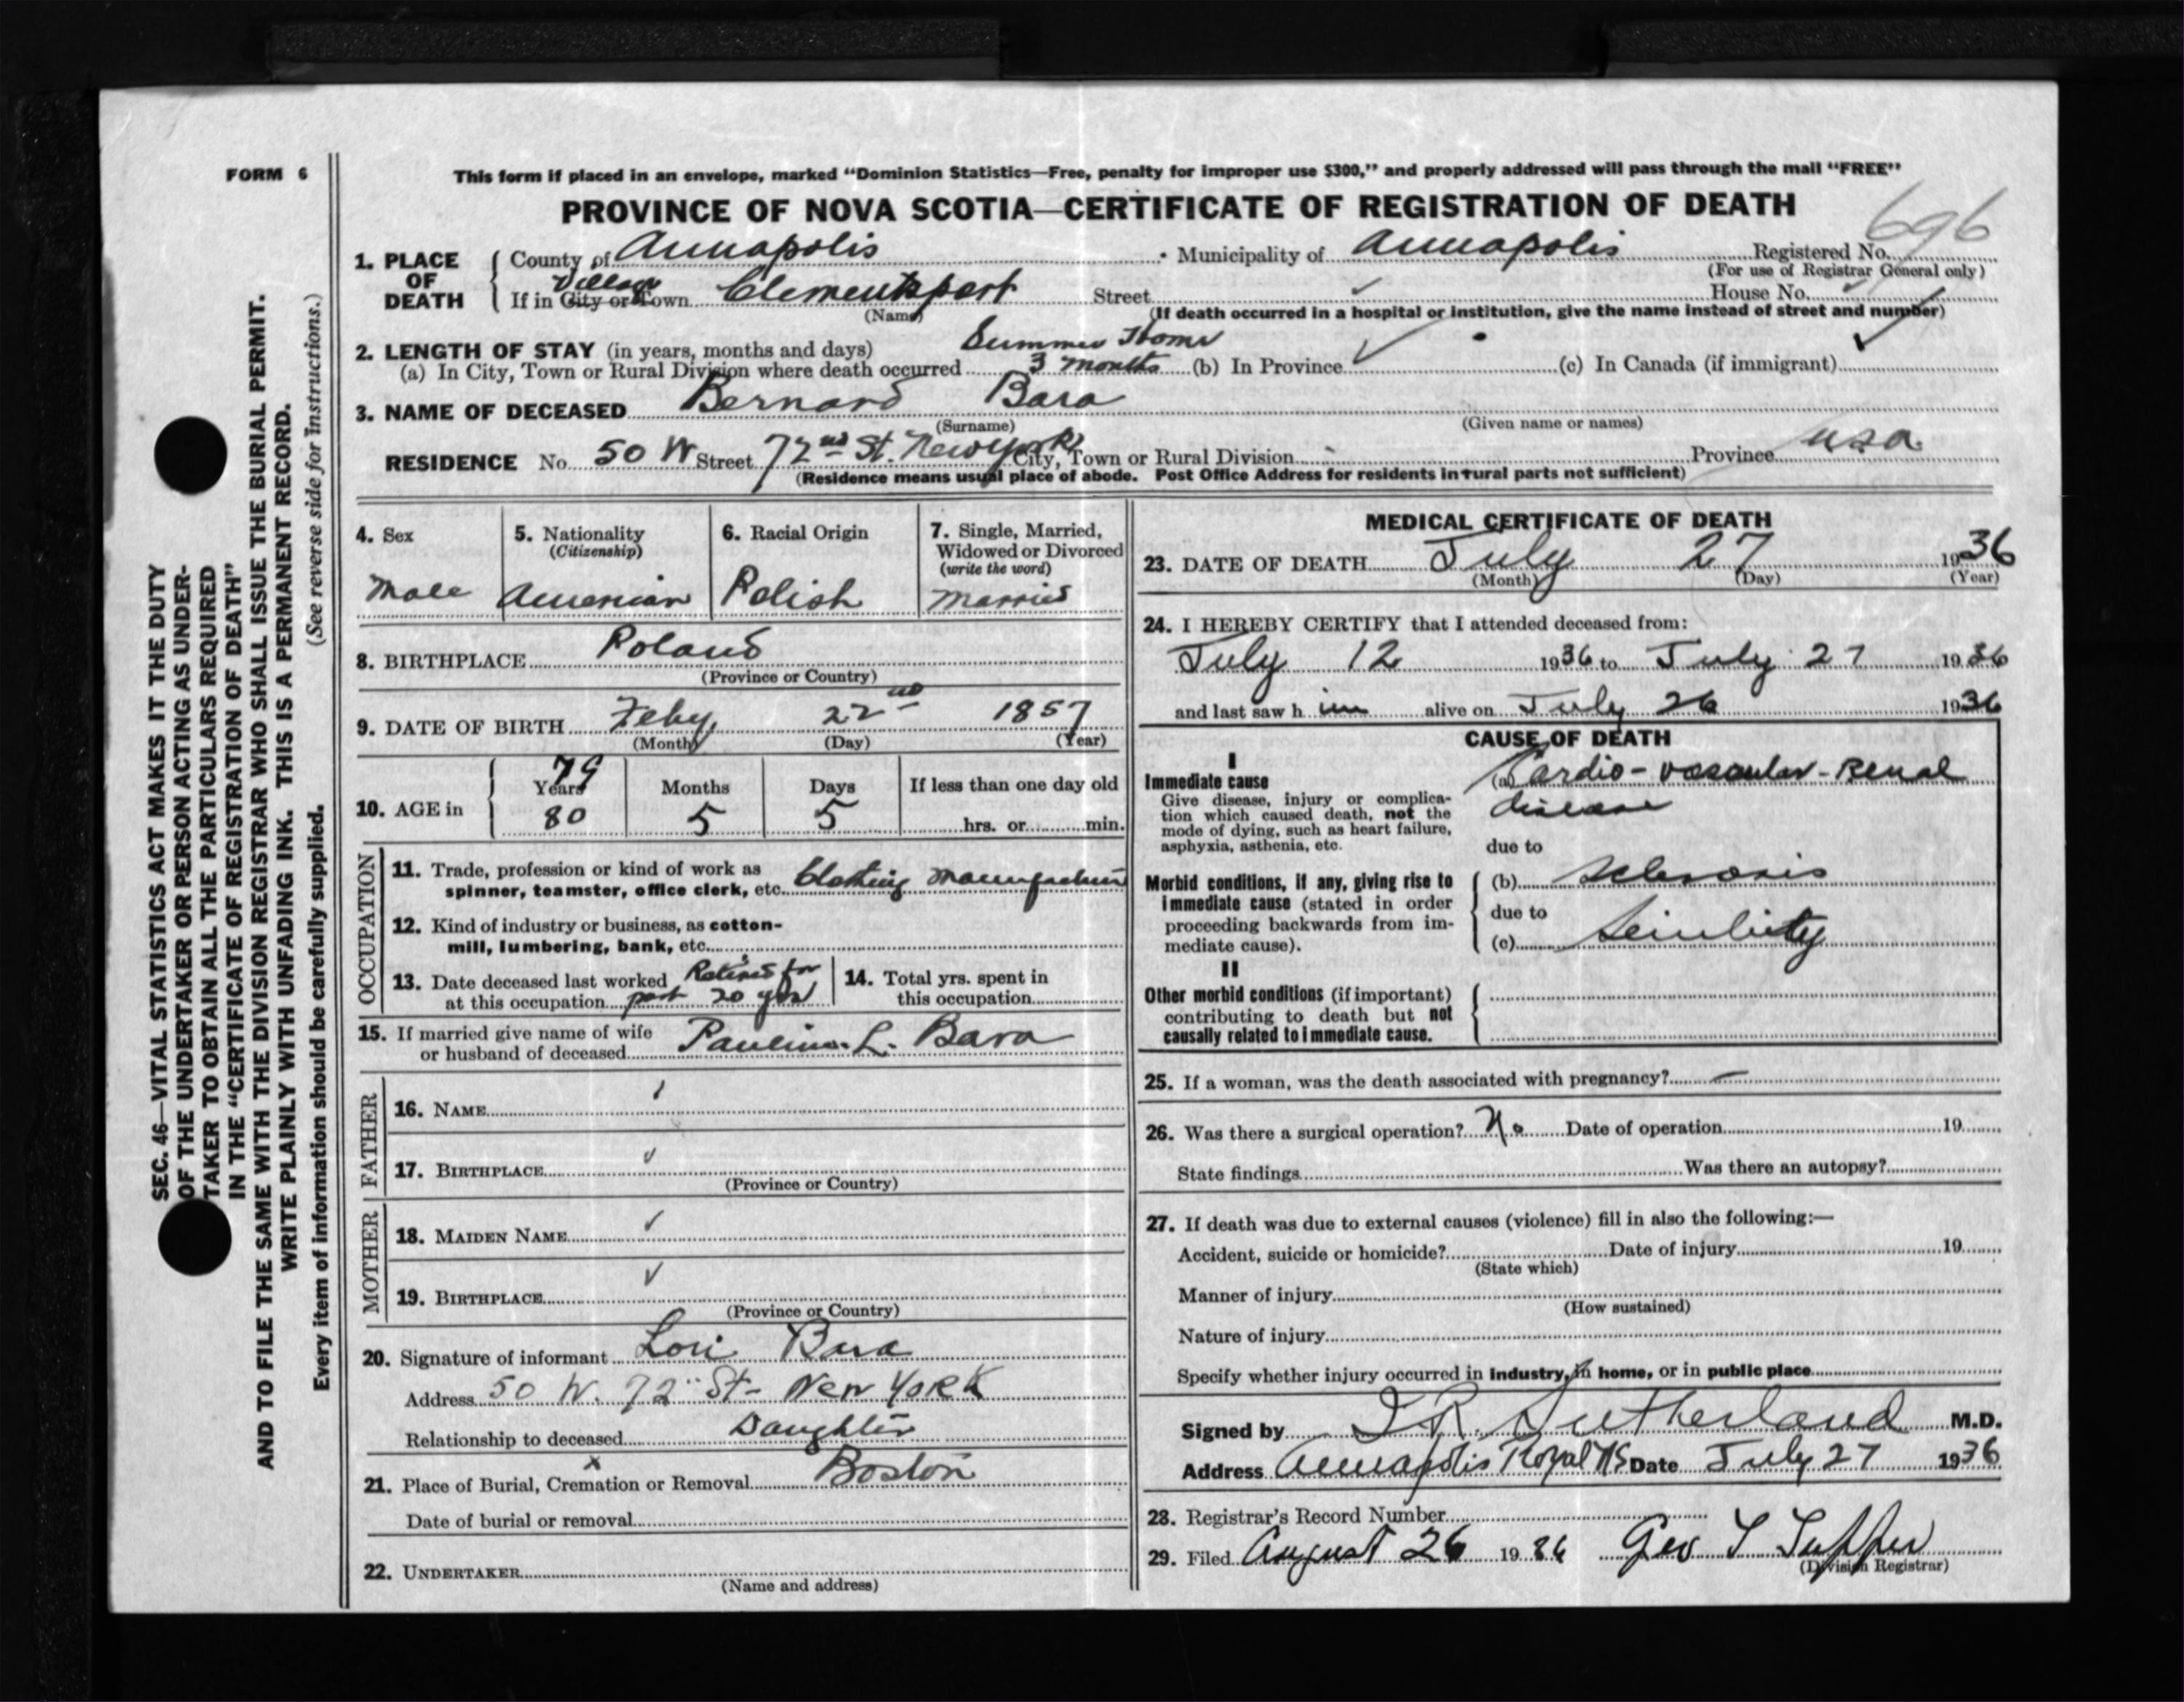 FORM 6
This form if placed in an envelope, marked "Dominion Statistics—Free, penalty for improper use $300," and properly addressed will pass through the mail "FREE"
PROVINCE OF NOVA SCOTIA—CERTIFICATE OF REGISTRATION OF DEATH
696
1. PLACE OF DEATH County of Annapolis Municipality of Annapolis Registered No.
(For use of Registrar General only)
Village
If in City or Town Clementsport Street House No.
(Name) (If death occurred in a hospital or institution, give the name instead of street and number)
2. LENGTH OF STAY (in years, months and days) Summer Home
(a) In City, Town or Rural Division where death occurred 3 months (b) In Province (c) In Canada (if immigrant)
3. NAME OF DECEASED Bernard Bara
(Surname) (Given name or names)
RESIDENCE No. 50 W Street 72nd St. New York City, Town or Rural Division Province USA
(Residence means usual place of abode. Post Office Address for residents in rural parts not sufficient)
4. Sex
Male
5. Nationality
(Citizenship)
American
6. Racial Origin
Polish
7. Single, Married,
Widowed or Divorced
(write the word)
Married
8. BIRTHPLACE Poland
(Province or Country)
9. DATE OF BIRTH Feby, 22nd 1857
(Month) (Day) (Year)
10. AGE in
79
Years Months Days If less than one day old
80 5 5 hrs. or min.
OCCUPATION
11. Trade, profession or kind of work as
spinner, teamster, office clerk, etc. Clothing
12. Kind of industry or business, as cotton-
mill, lumbering, bank, etc.
13. Date deceased last worked Retired for
at this occupation past 20 yrs
14. Total yrs. spent in
this occupation
15. If married give name of wife
or husband of deceased Pauline L. Bara
FATHER
16. NAME
17. BIRTHPLACE
(Province or Country)
MOTHER
18. MAIDEN NAME
19. BIRTHPLACE
(Province or Country)
20. Signature of informant Lori Bara
Address 50 W. 72" St- New York
Relationship to deceased Daughter
x
21. Place of Burial, Cremation or Removal Boston
Date of burial or removal
22. UNDERTAKER
(Name and address)
MEDICAL CERTIFICATE OF DEATH
23. DATE OF DEATH July 27 1936
(Month) (Day) (Year)
24. I HEREBY CERTIFY that I attended deceased from:
July 12 1936 to July 27 1936
and last saw h im alive on July 26 1936
CAUSE OF DEATH
I
Immediate cause
Give disease, injury or complica-
tion which caused death, not the
mode of dying, such as heart failure,
asphyxia, asthenia, etc.
(a) Cardio-vascular-Renal
disease
due to
Morbid conditions, if any, giving rise to
immediate cause (stated in order
proceeding backwards from im-
mediate cause).
(b) Sclerosis
due to
(c) Senility
II
Other morbid conditions (if important)
contributing to death but not
causally related to immediate cause.
25. If a woman, was the death associated with pregnancy? —
26. Was there a surgical operation? No Date of operation 19
State findings Was there an autopsy?
27. If death was due to external causes (violence) fill in also the following:—
Accident, suicide or homicide? Date of injury 19
(State which)
Manner of injury
(How sustained)
Nature of injury
Specify whether injury occurred in industry, in home, or in public place
Signed by Sutherland M.D.
Address Annapolis Royal NS Date July 27 1936
28. Registrar's Record Number
29. Filed August 26 1936 Geo T Tupper
(Division Registrar)
SEC. 46—VITAL STATISTICS ACT MAKES IT THE DUTY
OF THE UNDERTAKER OR PERSON ACTING AS UNDER-
TAKER TO OBTAIN ALL THE PARTICULARS REQUIRED
IN THE "CERTIFICATE OF REGISTRATION OF DEATH"
AND TO FILE THE SAME WITH THE DIVISION REGISTRAR WHO SHALL ISSUE THE BURIAL PERMIT.
WRITE PLAINLY WITH UNFADING INK. THIS IS A PERMANENT RECORD.
Every item of information should be carefully supplied. (See reverse side for instructions.)